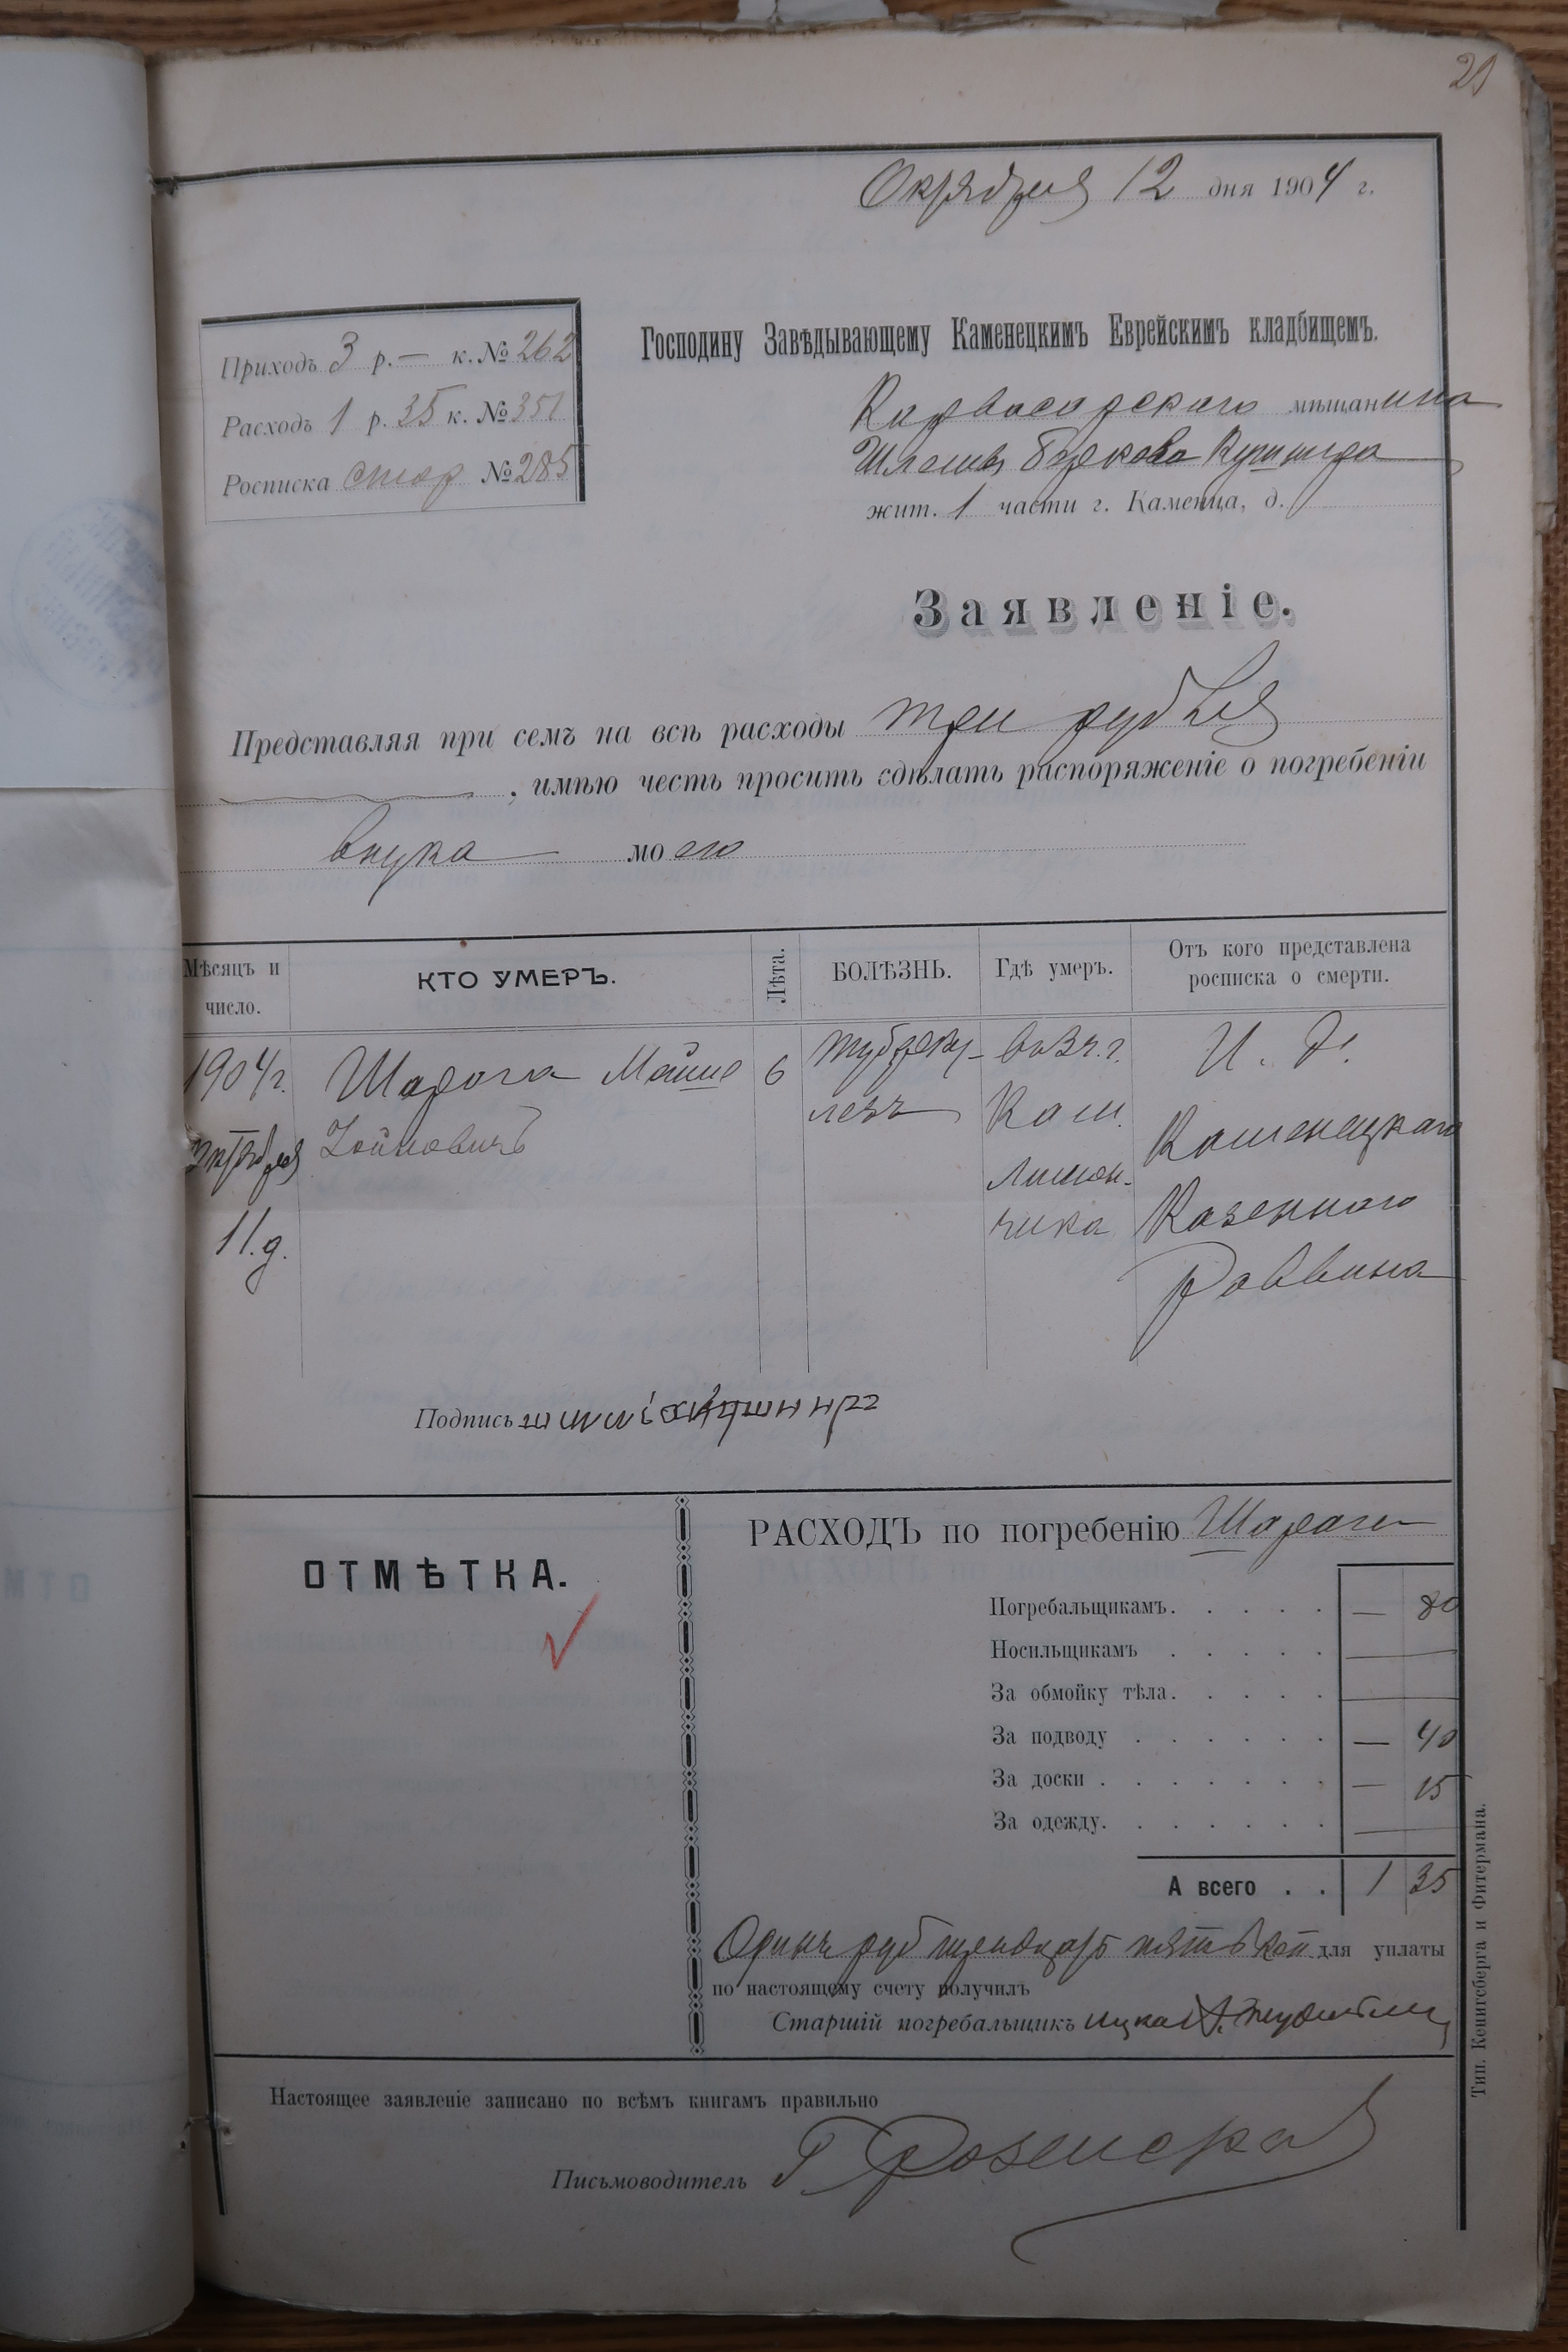 29
Октября 12 дня 1904 г.
Приходъ 3 р. — к. № 262
Расходъ 1 р. 35 к. № 351
Росписка № 285
Господину Завѣдывающему Каменецкимъ Еврейскимъ кладбищемъ.
Карвасарскаго мѣщанина
Берková Кушнира
жит. 1 части г. Каменца, д.
Заявленіе.
Представляя при семъ на всѣ расходы три рубля
, имѣю честь просить сдѣлать распоряженіе о погребеніи
внука моего
Мѣсяцъ и число.
КТО УМЕРЪ.
Лѣта.
БОЛѢЗНЬ.
Гдѣ умеръ.
Отъ кого представлена росписка о смерти.
1904 г. Октября 11 д.
Шарога Мойше
6
туберку-
лезъ
въ 3 ч. г.
Кам.
Лимон-
чика
И. д.
Каменецкаго
Казеннаго
Раввина
Подпись
ОТМѢТКА.
РАСХОДЪ по погребенію Шароги
Погребальщикамъ. . . . . — 80
Носильщикамъ . . . . . —
За обмойку тѣла. . . . . —
За подводу . . . . . . — 40
За доски . . . . . . . — 15
За одежду. . . . . . . —
А всего . . 1 35
Одинъ руб тридцать пять коп для уплаты
по настоящему счету получилъ
Старшій погребальщикъ
Настоящее заявленіе записано по всѣмъ книгамъ правильно
Письмоводитель
Тип. Кенигсберга и Фитермана.